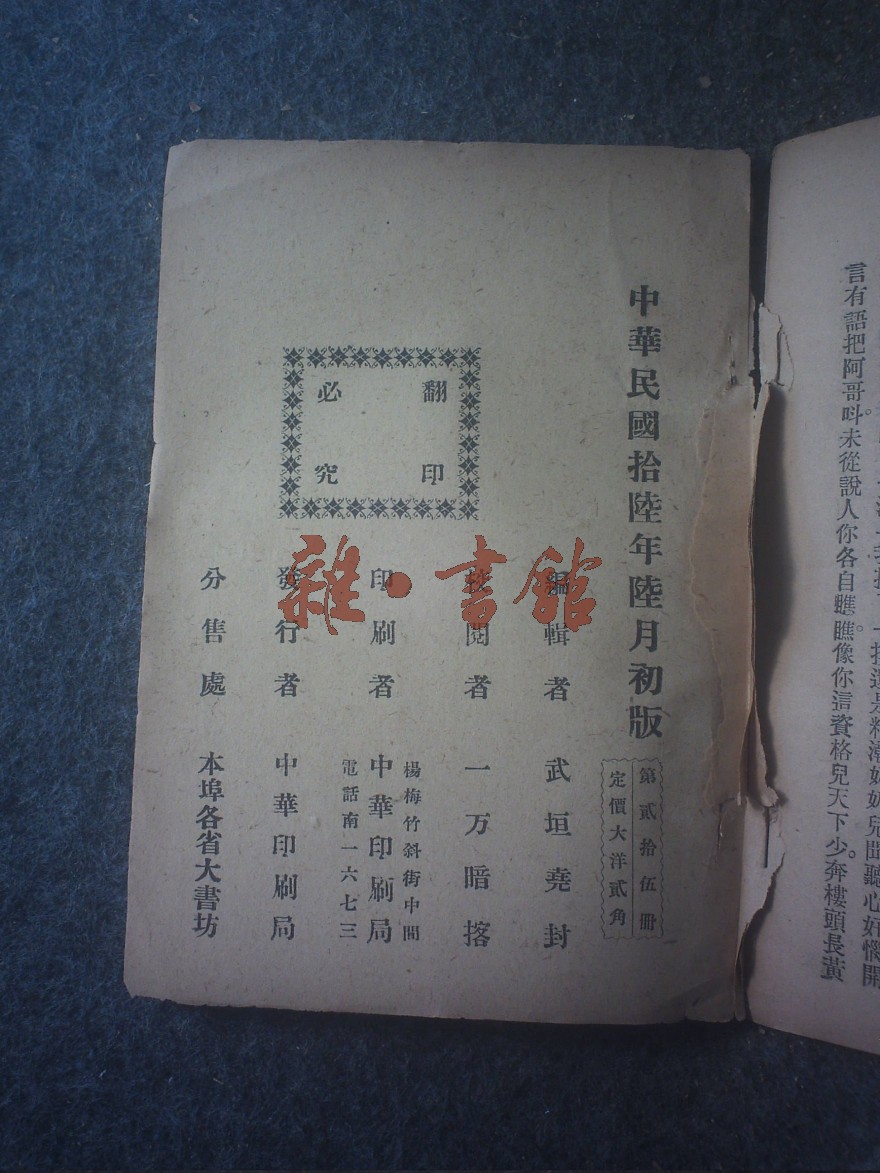 言有語把阿哥呌未從說人你各自瞧瞧像你這資格兒天下少。奔樓頭長黃
中華民國拾陸年陸月初版
第貳拾伍册
定價大洋貳角
編輯者 武垣堯封
校閱者 一万暗㨯
楊梅竹斜街中間
印刷者 中華印刷局
電話南一六七三
發行者 中華印刷局
分售處 本埠各省大書坊
翻印
必究
雜·書館